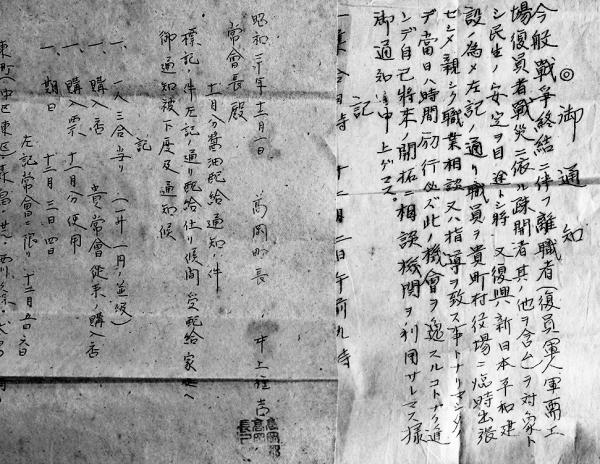 ◎御通知
今般戦争終結ニ伴フ離職者(復員軍人軍需工
場復員者戦災ニ依ル疎開者其ノ他ヲ含ム)ヲ対象ト
シ民生ノ安定ヲ目途トシ将又復興新日本平和建
設ノ為メ左記ノ通リ職員ヲ貴町村役場ニ臨時出張
セシメ親シク職業相談又ハ指導ヲ致ス事トナリマシタ
デ當日ハ時間励行必ズ此ノ機會ヲ逸スルコトナク進
ンデ自己將来ノ開拓ニ相談機関ヲ利用サレマス様
御通知申上ゲマス。
記
十二月二日午前九時
昭和二十年十二月 日 高岡町長 井上
常會長殿
十一月分醤油配給通知ノ件
標記ノ件左記ノ通リ配給仕リ候間受配給家庭ヘ
御通知被下度及通知候
記
一、一人三合当リ (一升一円ノ並級)
一、購入店 貴常會従来ノ購入店
一、購入票 十一月分使用
一、期日 十二月三日四日
左記常會ニ限リ十二月五日六日
東町(中区東区)